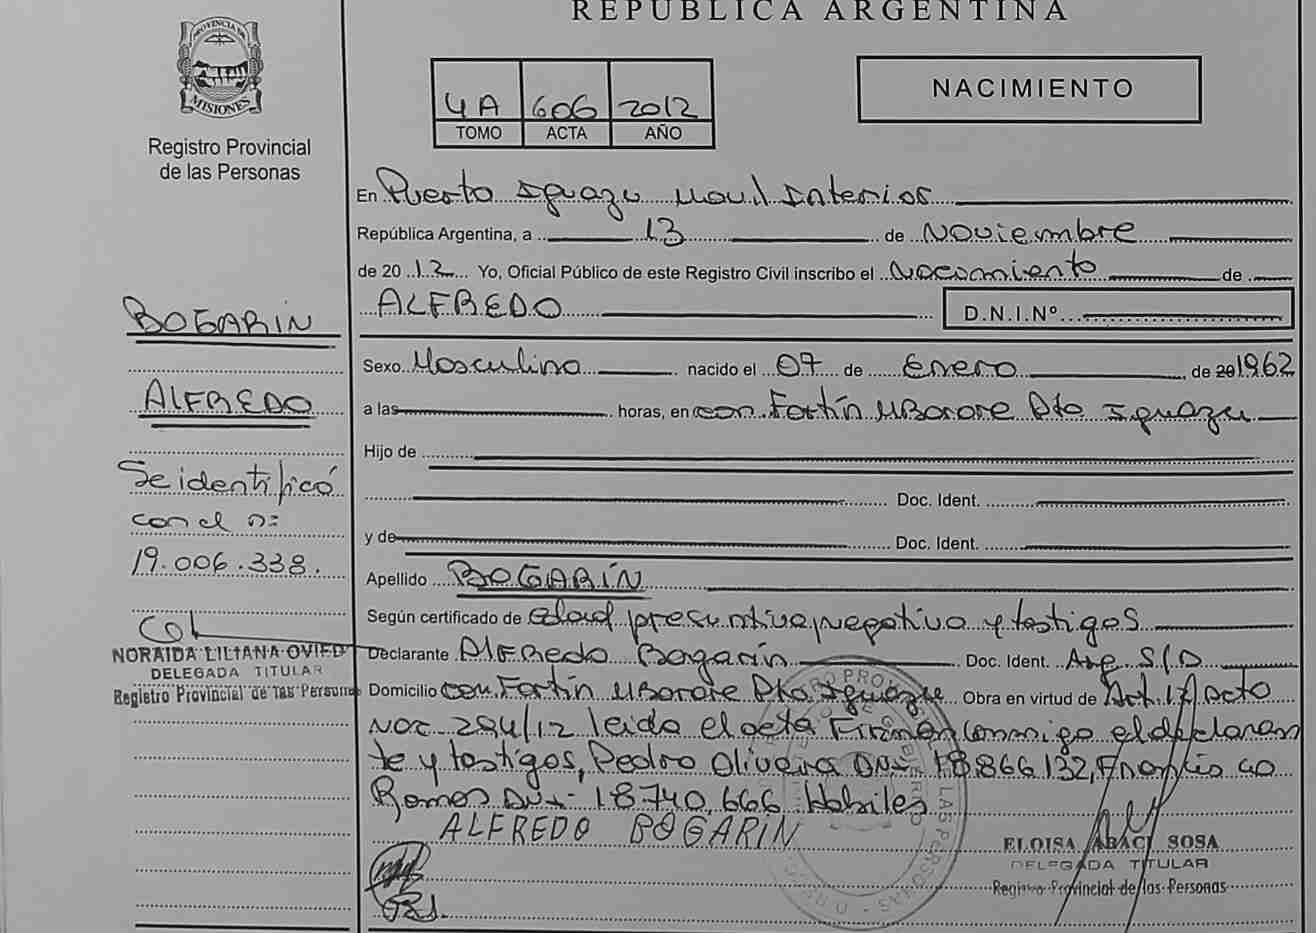 REPUBLICA ARGENTINA
PROVINCIA DE
MISIONES
Registro Provincial
de las Personas
4A 606 2012
TOMO ACTA AÑO
NACIMIENTO
En Puerto Iguazu Movil Interior
República Argentina, a 13 de Noviembre
de 2012 Yo, Oficial Público de este Registro Civil inscribo el Nacimiento de
ALFREDO
D.N.I.Nº
Sexo Masculino nacido el 07 de Enero de 20 1962
a las horas, en con. Fortín Mborore Pto Iguazu
Hijo de
Doc. Ident.
y de Doc. Ident.
Apellido BOGARÍN
Según certificado de edad presuntiva, negativo y testigos
Declarante Alfredo Bogarín Doc. Ident. Arg. S/D
Domicilio con. Fortín Mborore Pto. Iguazu Obra en virtud de Art. Acto
Nac. 294/12 leida el acta Firman Conmigo el declaran
te y testigos, Pedro Oliveira DNI- 18.866.132, Francisco
Ramos DNI- 18.740.666 Habiles
ALFREDO BOGARIN
ELOISA ARACI SOSA
DELEGADA TITULAR
Registro Provincial de las Personas
BOGARIN
ALFREDO
Se identificó
con el n:
19.006.338.
NORAIDA LILIANA OVIED
DELEGADA TITULAR
Registro Provincial de las Personas